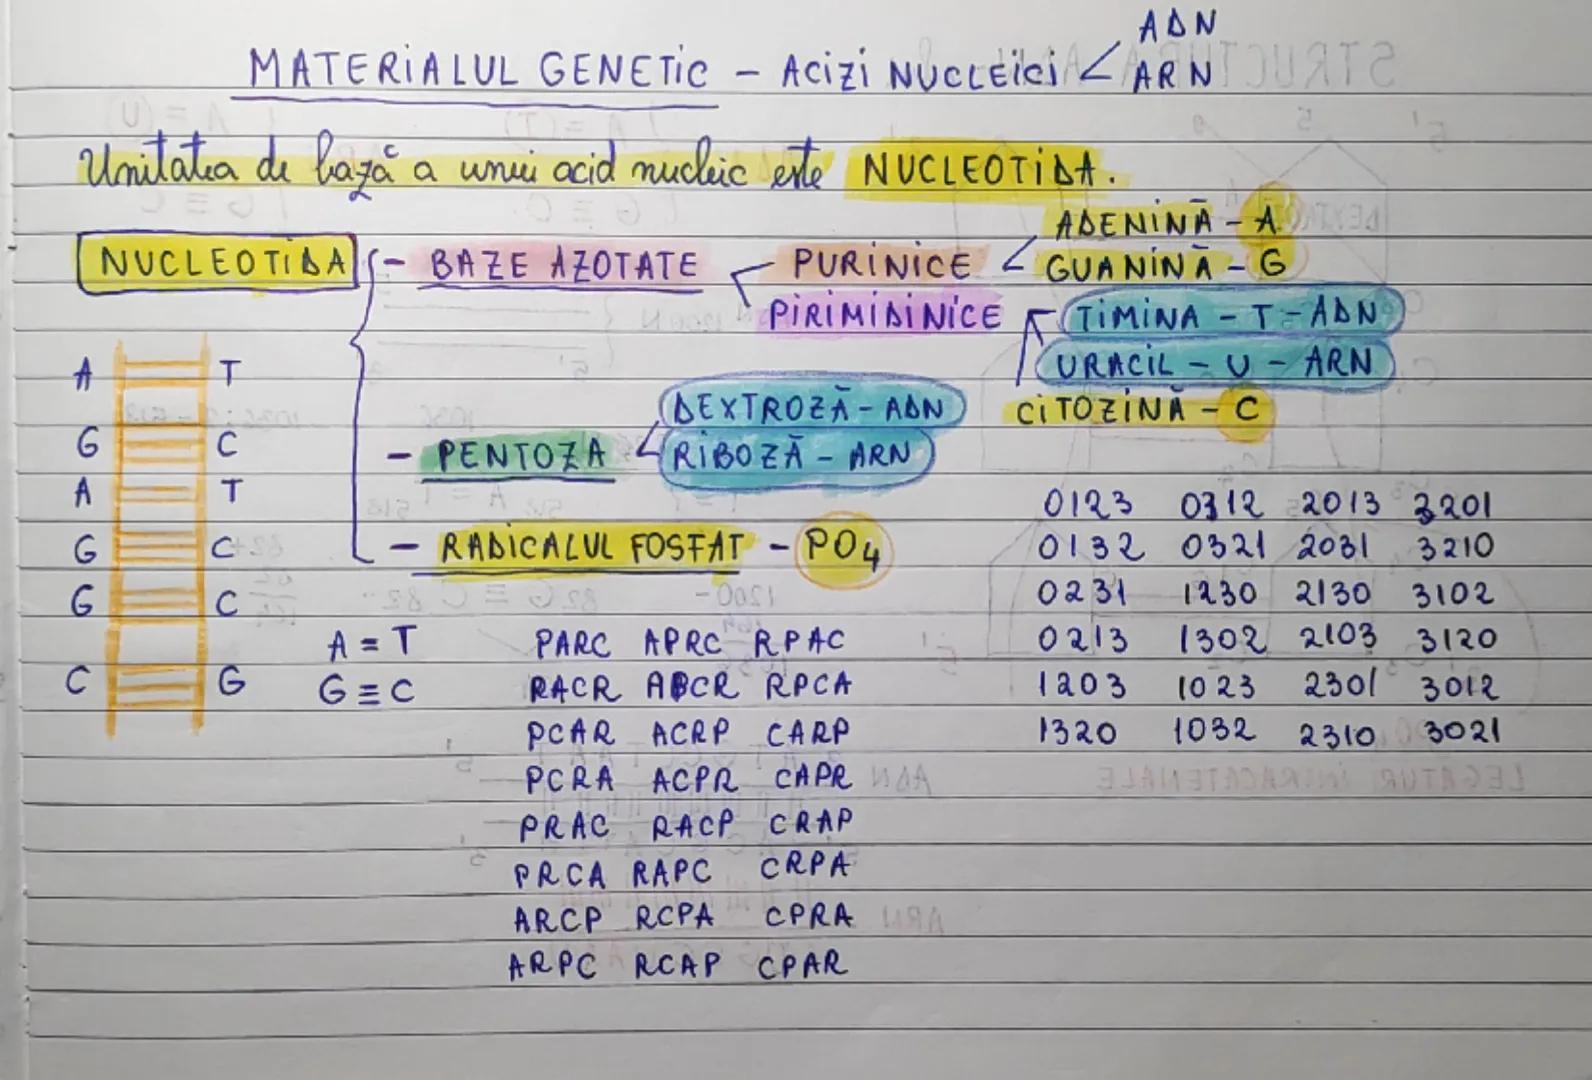 ADN
MATERIALUL GENETIC - ACIZI NUCLEICI < ARN
Unitatea de bază a unui acid nucleic este NUCLEOTIDA.
ADENINĂ - A
NUCLEOTIDA { - BAZE AZOTATE < PURINICE < GUANINĂ - G
PIRIMIDINICE TIMINA - T - ADN
URACIL - U - ARN
CITOZINĂ - C
DEXTROZĂ - ADN
- PENTOZA < RIBOZĂ - ARN
- RADICALUL FOSFAT - PO4
A T
G C
A T
G C
G C
C G
A = T
G ≡ C
PARC APRC RPAC
RACR APCR RPCA
PCAR ACRP CARP
PCRA ACPR CAPR
PRAC RACP CRAP
PRCA RAPC CRPA
ARCP RCPA CPRA
ARPC RCAP CPAR
0123 0312 2013 3201
0132 0321 2031 3210
0231 1230 2130 3102
0213 1302 2103 3120
1203 1023 2301 3012
1320 1032 2310 3021